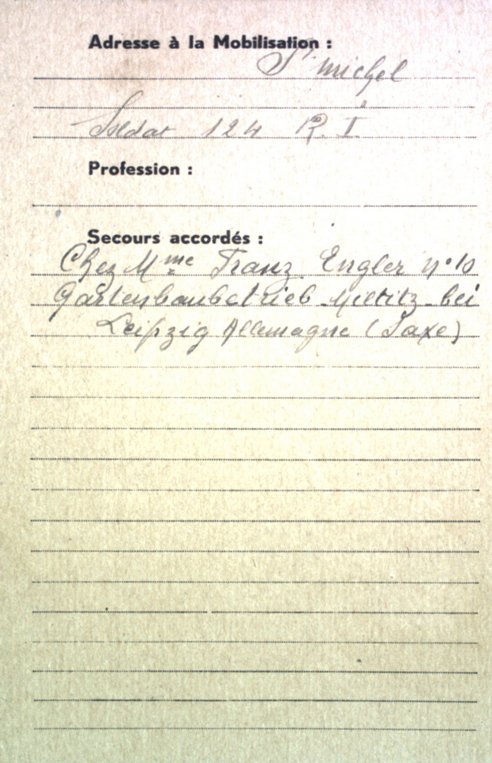 Adresse à la Mobilisation :
St michel
Soldat 124 R. I
Profession :
Secours accordés :
Chez Mme Franz Engler n°10
Gartenbaubetrieb Miltitz bei
Leipzig Allemagne (Saxe)